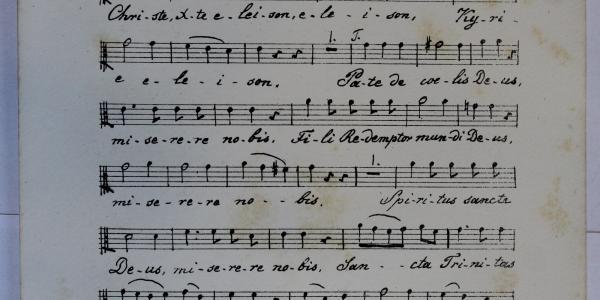 Chri-ste, X-te e-lei-son, e-le-i-son, Ky-ri-
1. T.
e e-le-i-son. Pa-te de coe-lis De-us,
mi-se-re-re no-bis. Fi-li Re-demptor mun-di De-us,
1.
mi-se-re-re no--bis. Spi-ri-tus sancte
De-us, mi-se-re-re no-bis, San--cta Tri-ni-tas